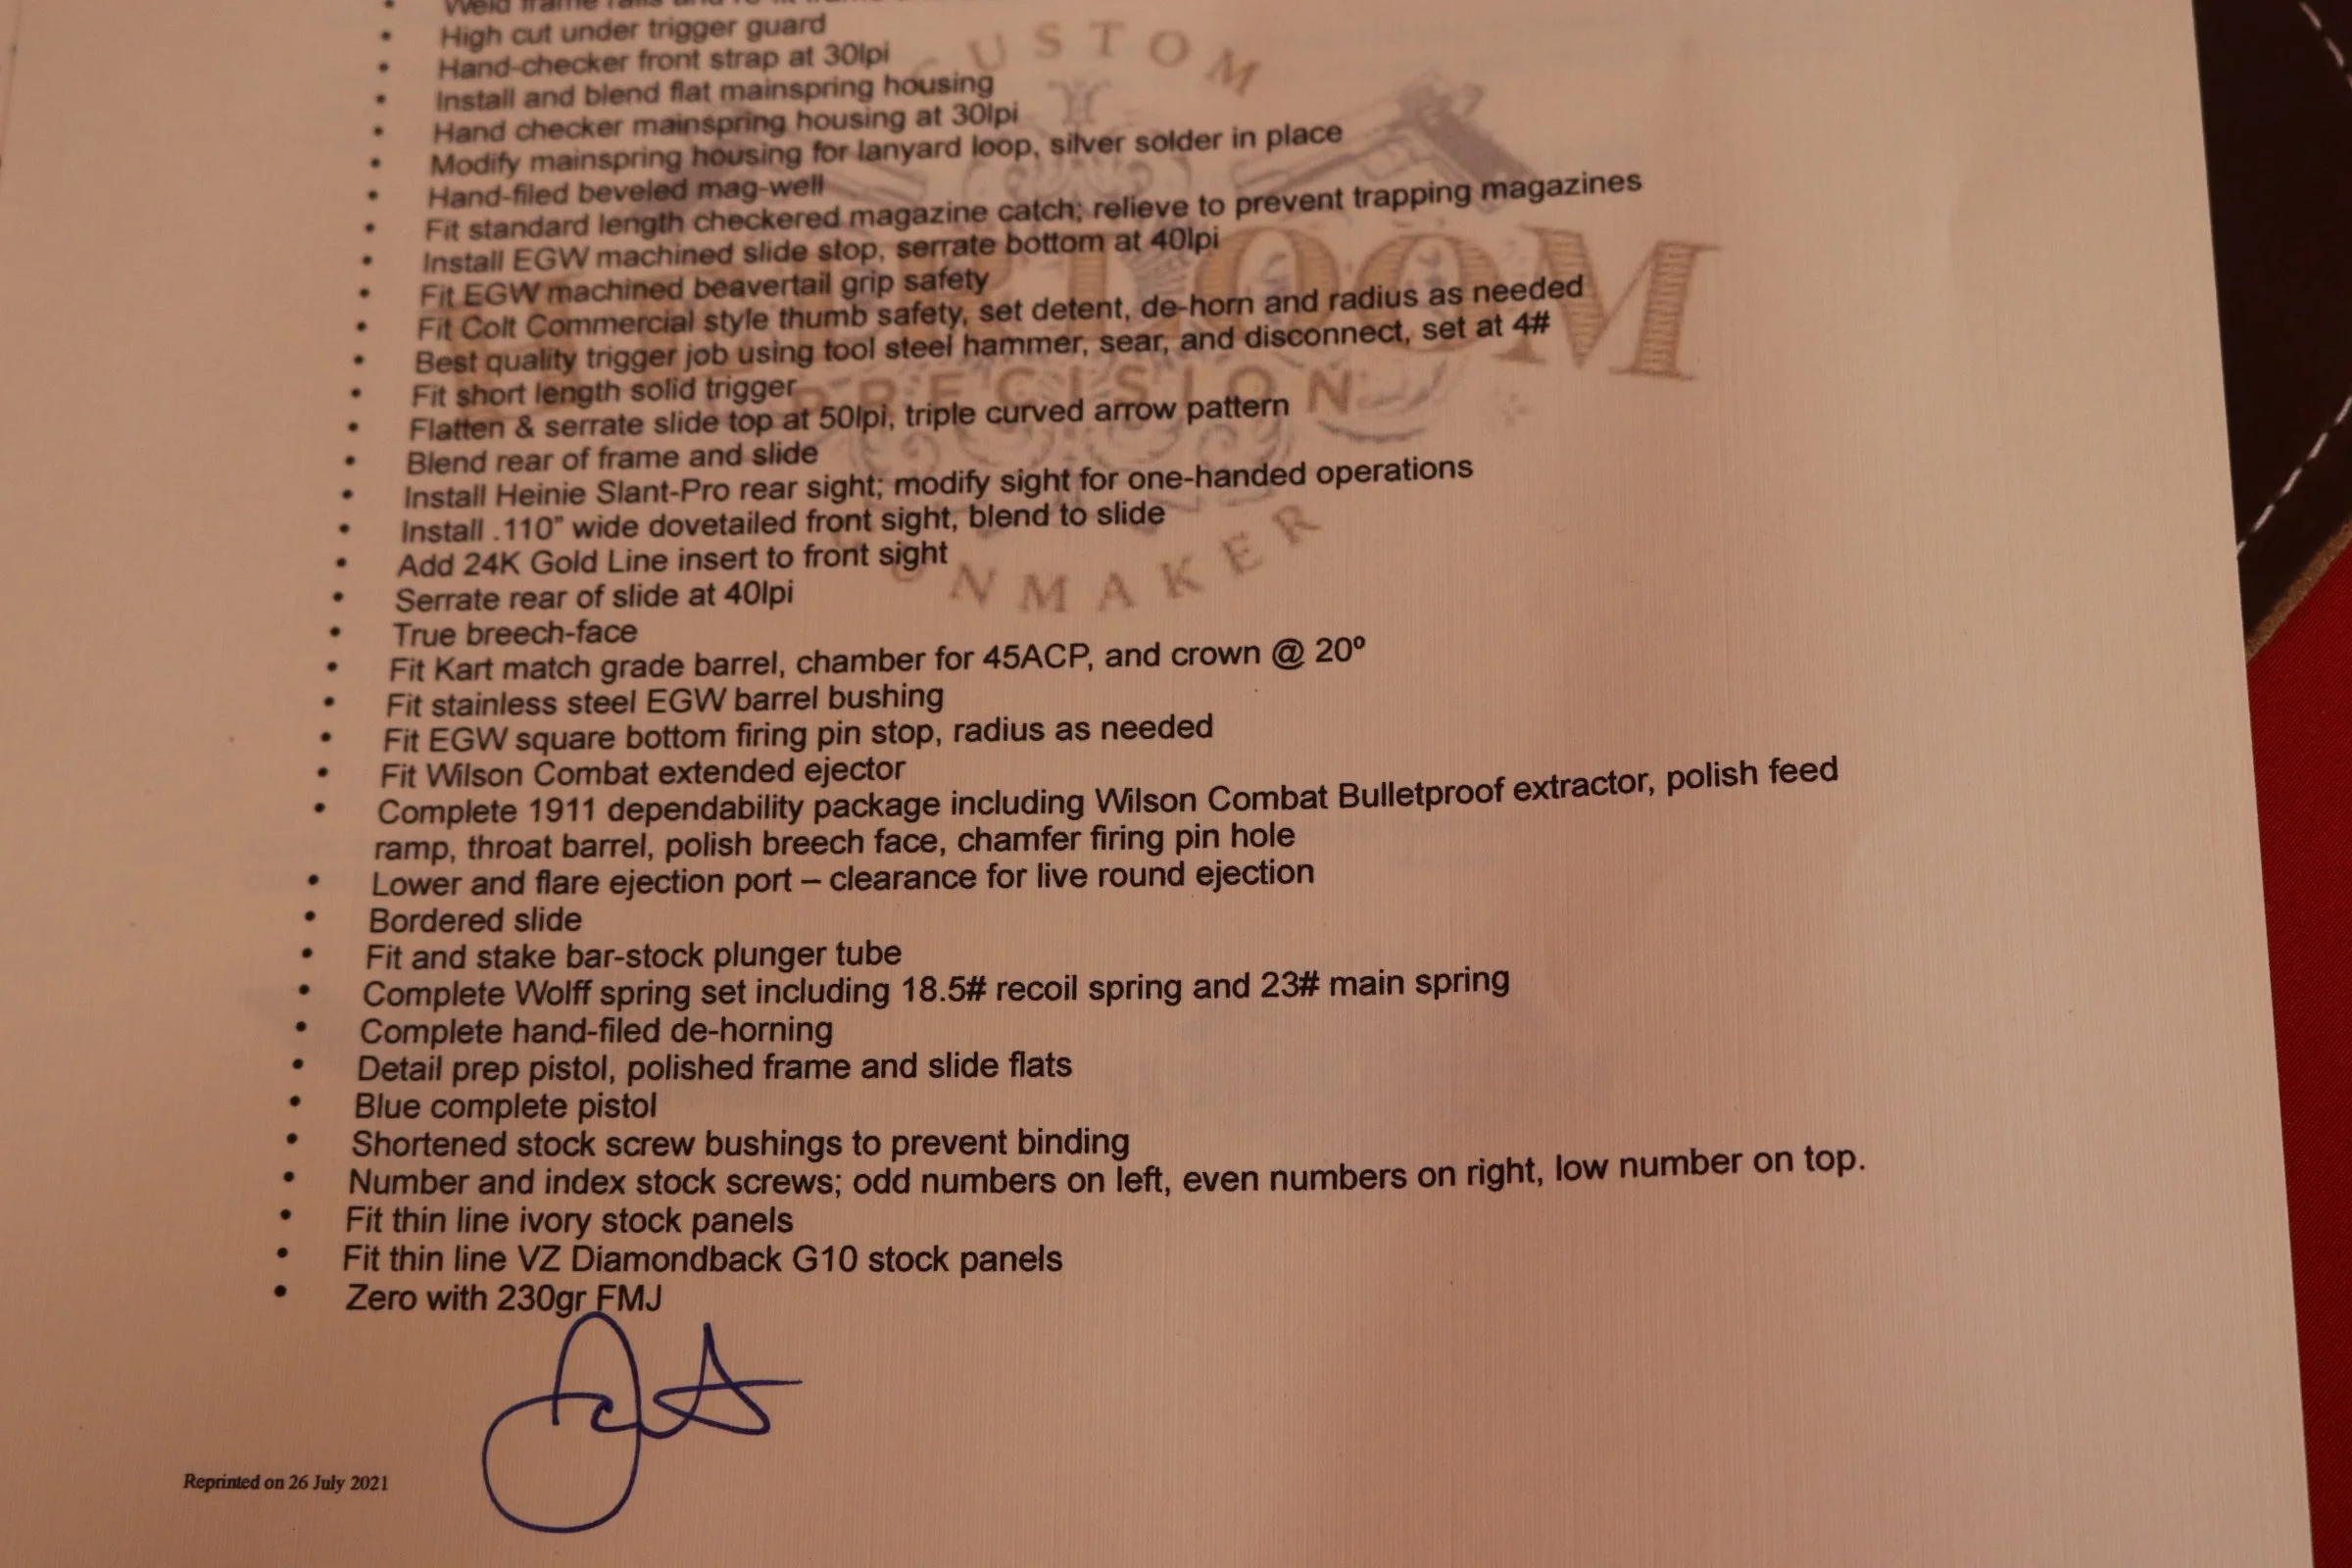 Weld frame rails and re-fit frame and
High cut under trigger guard
Hand-checker front strap at 30lpi
Install and blend flat mainspring housing
Hand checker mainspring housing at 30lpi
Modify mainspring housing for lanyard loop, silver solder in place
Hand-filed beveled mag-well
Fit standard length checkered magazine catch; relieve to prevent trapping magazines
Install EGW machined slide stop, serrate bottom at 40lpi
Fit EGW machined beavertail grip safety
Fit Colt Commercial style thumb safety, set detent, de-horn and radius as needed
Best quality trigger job using tool steel hammer, sear, and disconnect, set at 4#
Fit short length solid trigger
Flatten & serrate slide top at 50lpi, triple curved arrow pattern
Blend rear of frame and slide
Install Heinie Slant-Pro rear sight; modify sight for one-handed operations
Install .110” wide dovetailed front sight, blend to slide
Add 24K Gold Line insert to front sight
Serrate rear of slide at 40lpi
True breech-face
Fit Kart match grade barrel, chamber for 45ACP, and crown @ 20º
Fit stainless steel EGW barrel bushing
Fit EGW square bottom firing pin stop, radius as needed
Fit Wilson Combat extended ejector
Complete 1911 dependability package including Wilson Combat Bulletproof extractor, polish feed
ramp, throat barrel, polish breech face, chamfer firing pin hole
Lower and flare ejection port – clearance for live round ejection
Bordered slide
Fit and stake bar-stock plunger tube
Complete Wolff spring set including 18.5# recoil spring and 23# main spring
Complete hand-filed de-horning
Detail prep pistol, polished frame and slide flats
Blue complete pistol
Shortened stock screw bushings to prevent binding
Number and index stock screws; odd numbers on left, even numbers on right, low number on top.
Fit thin line ivory stock panels
Fit thin line VZ Diamondback G10 stock panels
Zero with 230gr FMJ
Reprinted on 26 July 2021
CUSTOM
PRECISION